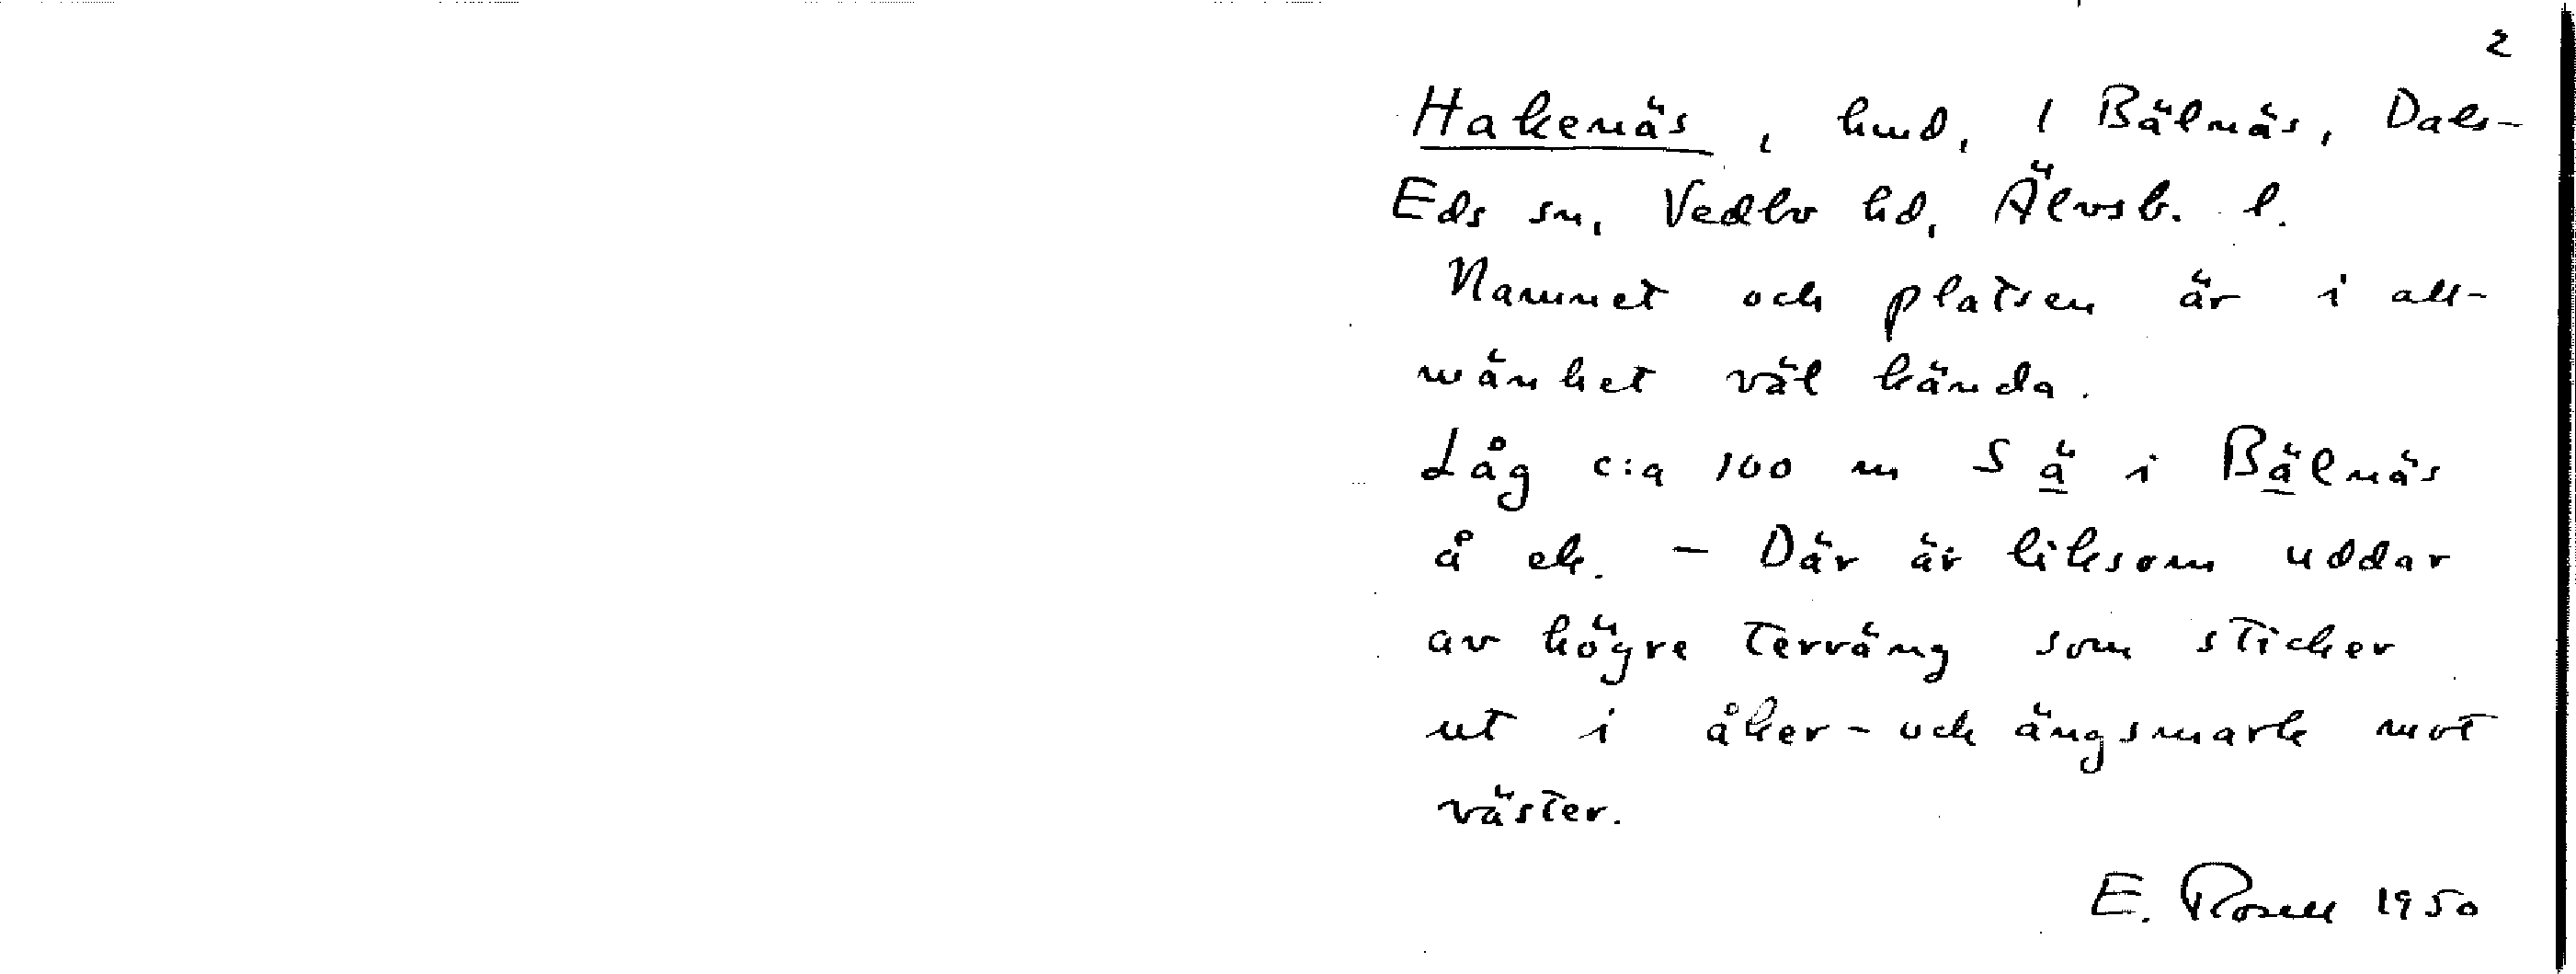 2
Hakenäs, hmd, 1 Bälnäs, Dals-
Eds sn, Vedbo hd, Älvsb. l.
Namnet och platsen är i all-
mänhet väl kända.
Låg c:a 100 m S ä i Bälnäs
å ek. - Där är liksom uddar
av högre terräng som sticker
ut i åker- och ängsmark mot
väster.
E. Rosell 1950